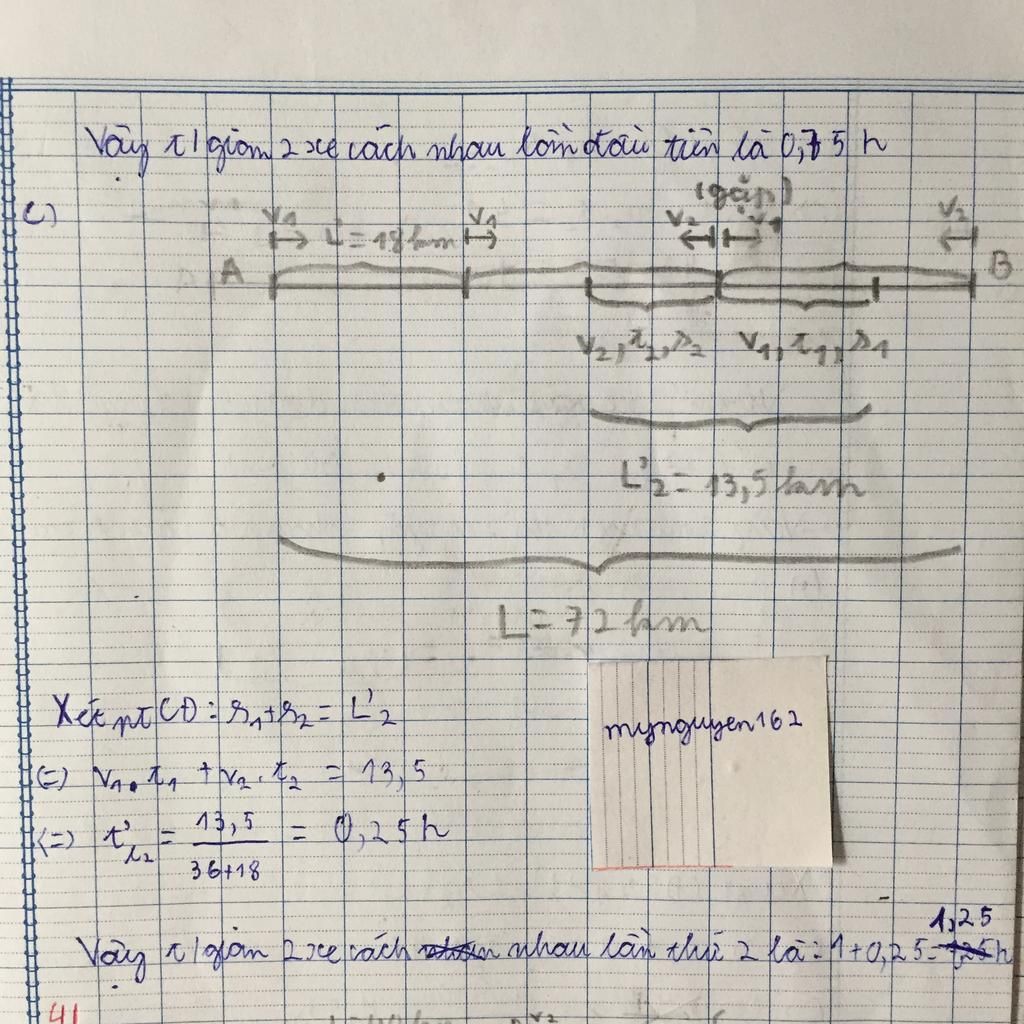 Vậy t/gian 2 xe cách nhau lần đầu tiên là 0,75 h
c)
(gặp)
v1 L' = 18 km v1 v2 v1 v2
A B
v2, t2, s2 v1, t1, s1
L'2 = 13,5 km
L = 72 km
Xét pt CĐ: s1 + s2 = L'2
mynguyen162
(=) v1. t1 + v2. t2 = 13,5
(=) t'L2 = 13,5 / 36+18 = 0,25 h
Vậy t/gian 2 xe cách nhau lần thứ 2 là: 1 + 0,25 = 1,25 h
41